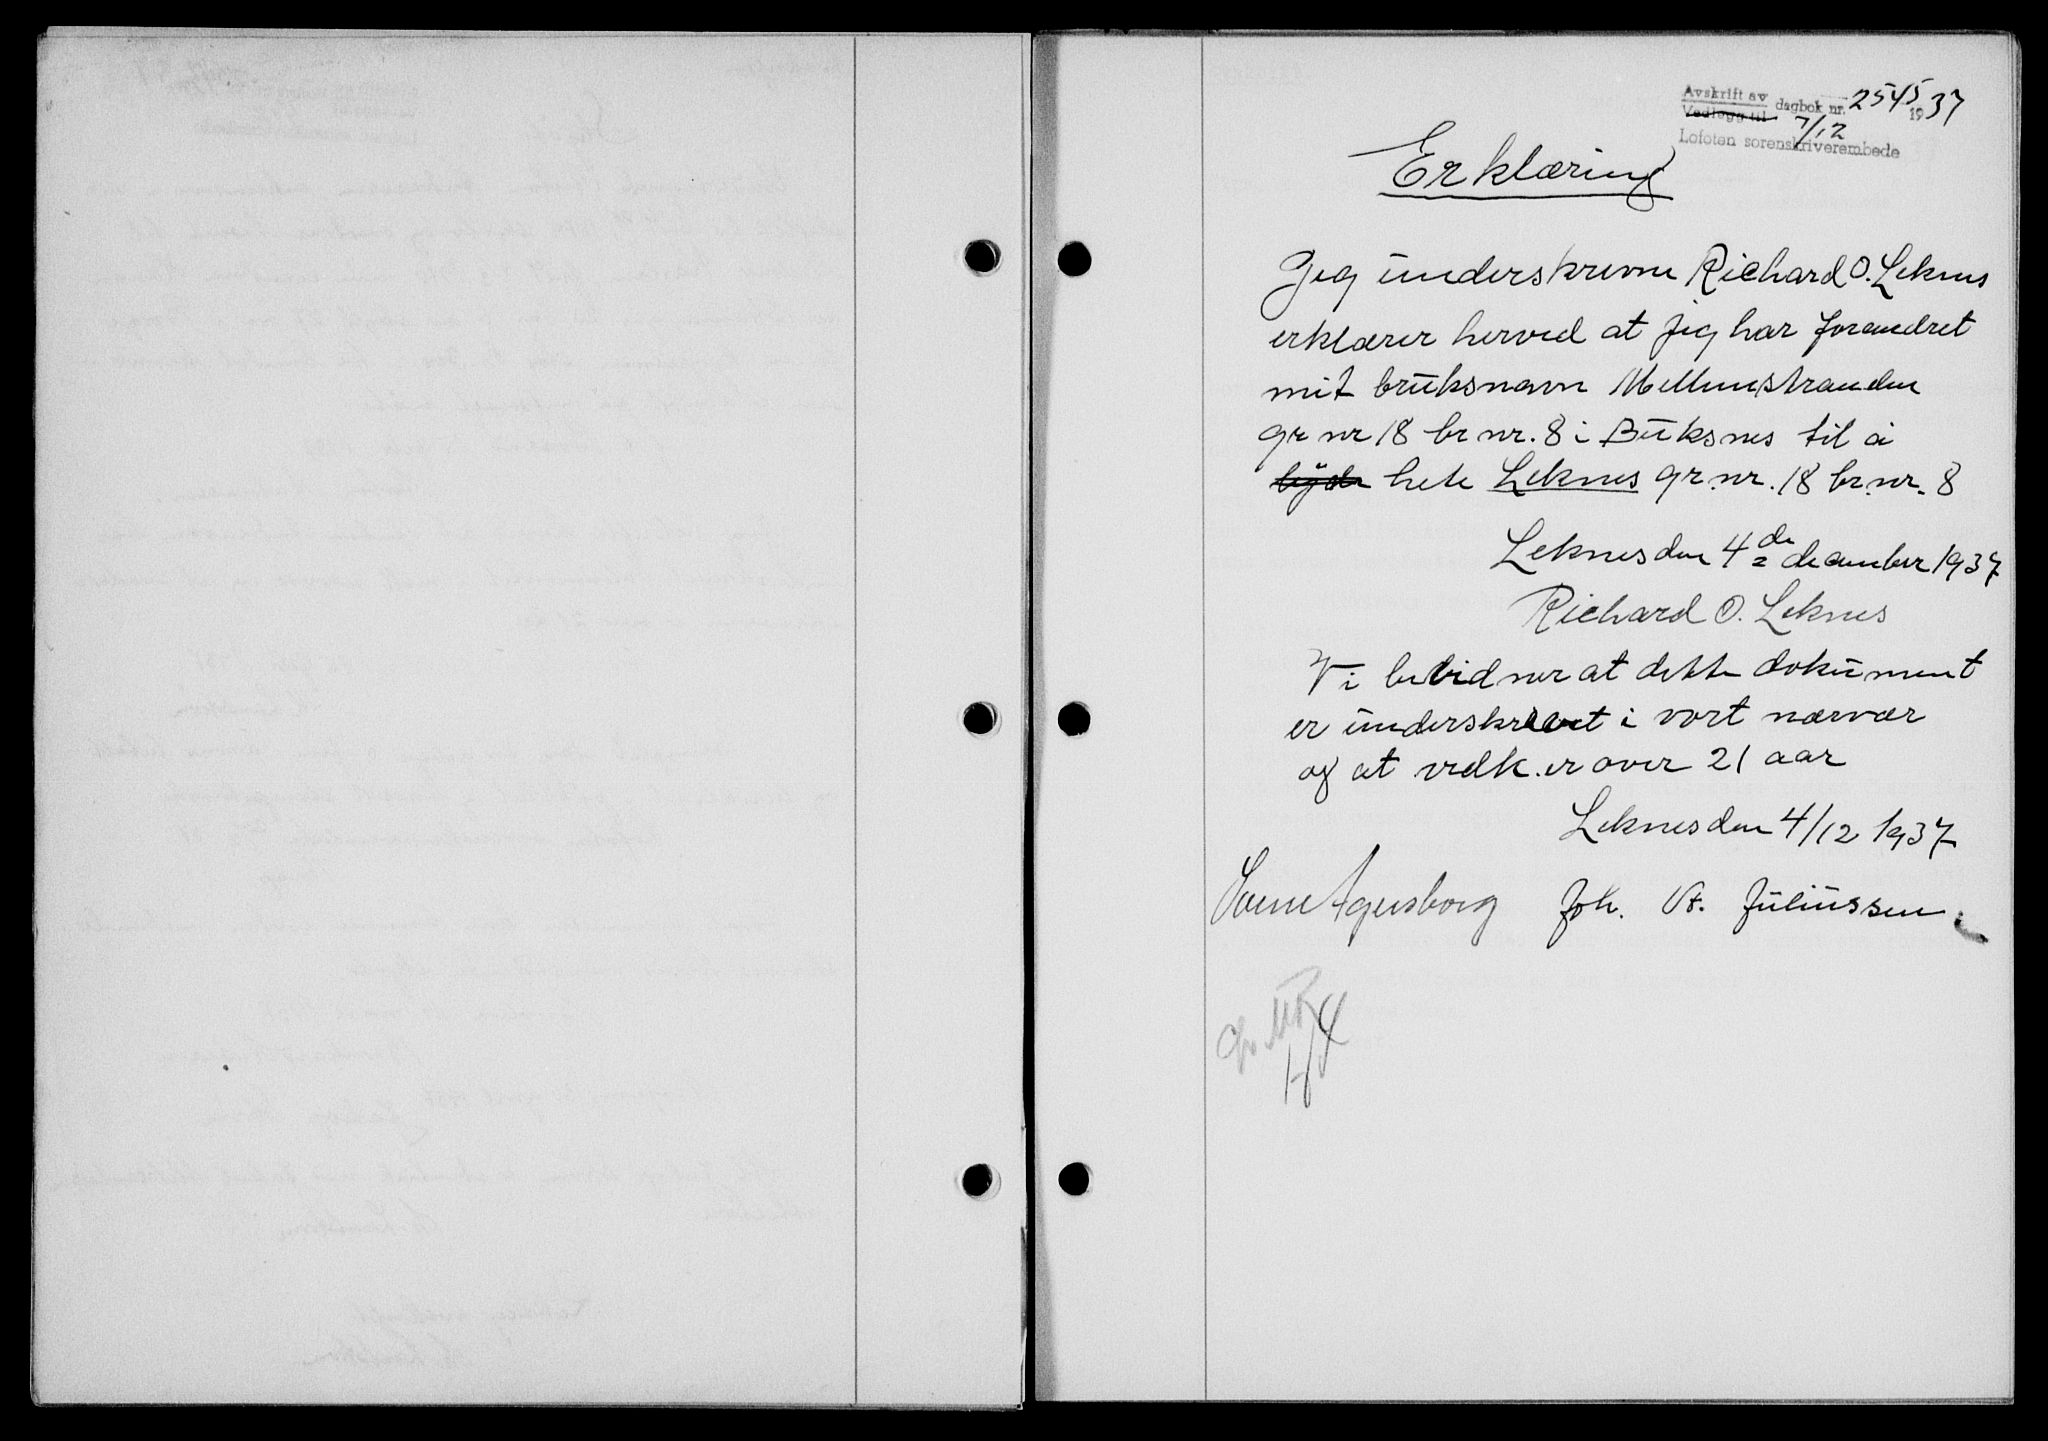 Avskrift av dagbok nr. 2545 1937
Vedlegg til 7/12
Lofoten sorenskriverembede
Erklæring
Jeg underskrevne Richard O. Leknes
erklærer herved at jeg har forandret
mit bruksnavn Mellemstranden
gr nr 18 br nr. 8 i Buksnes til å
lyde hete Leknes gr. nr. 18 br. nr. 8
Leknes den 4de december 1937
Richard O. Leknes
Vi bevidner at dette dokument
er underskrevet i vort nærvær
og at vedk. er over 21 aar
Leknes den 4/12 1937
Agersborg Joh. Kr. Juliussen